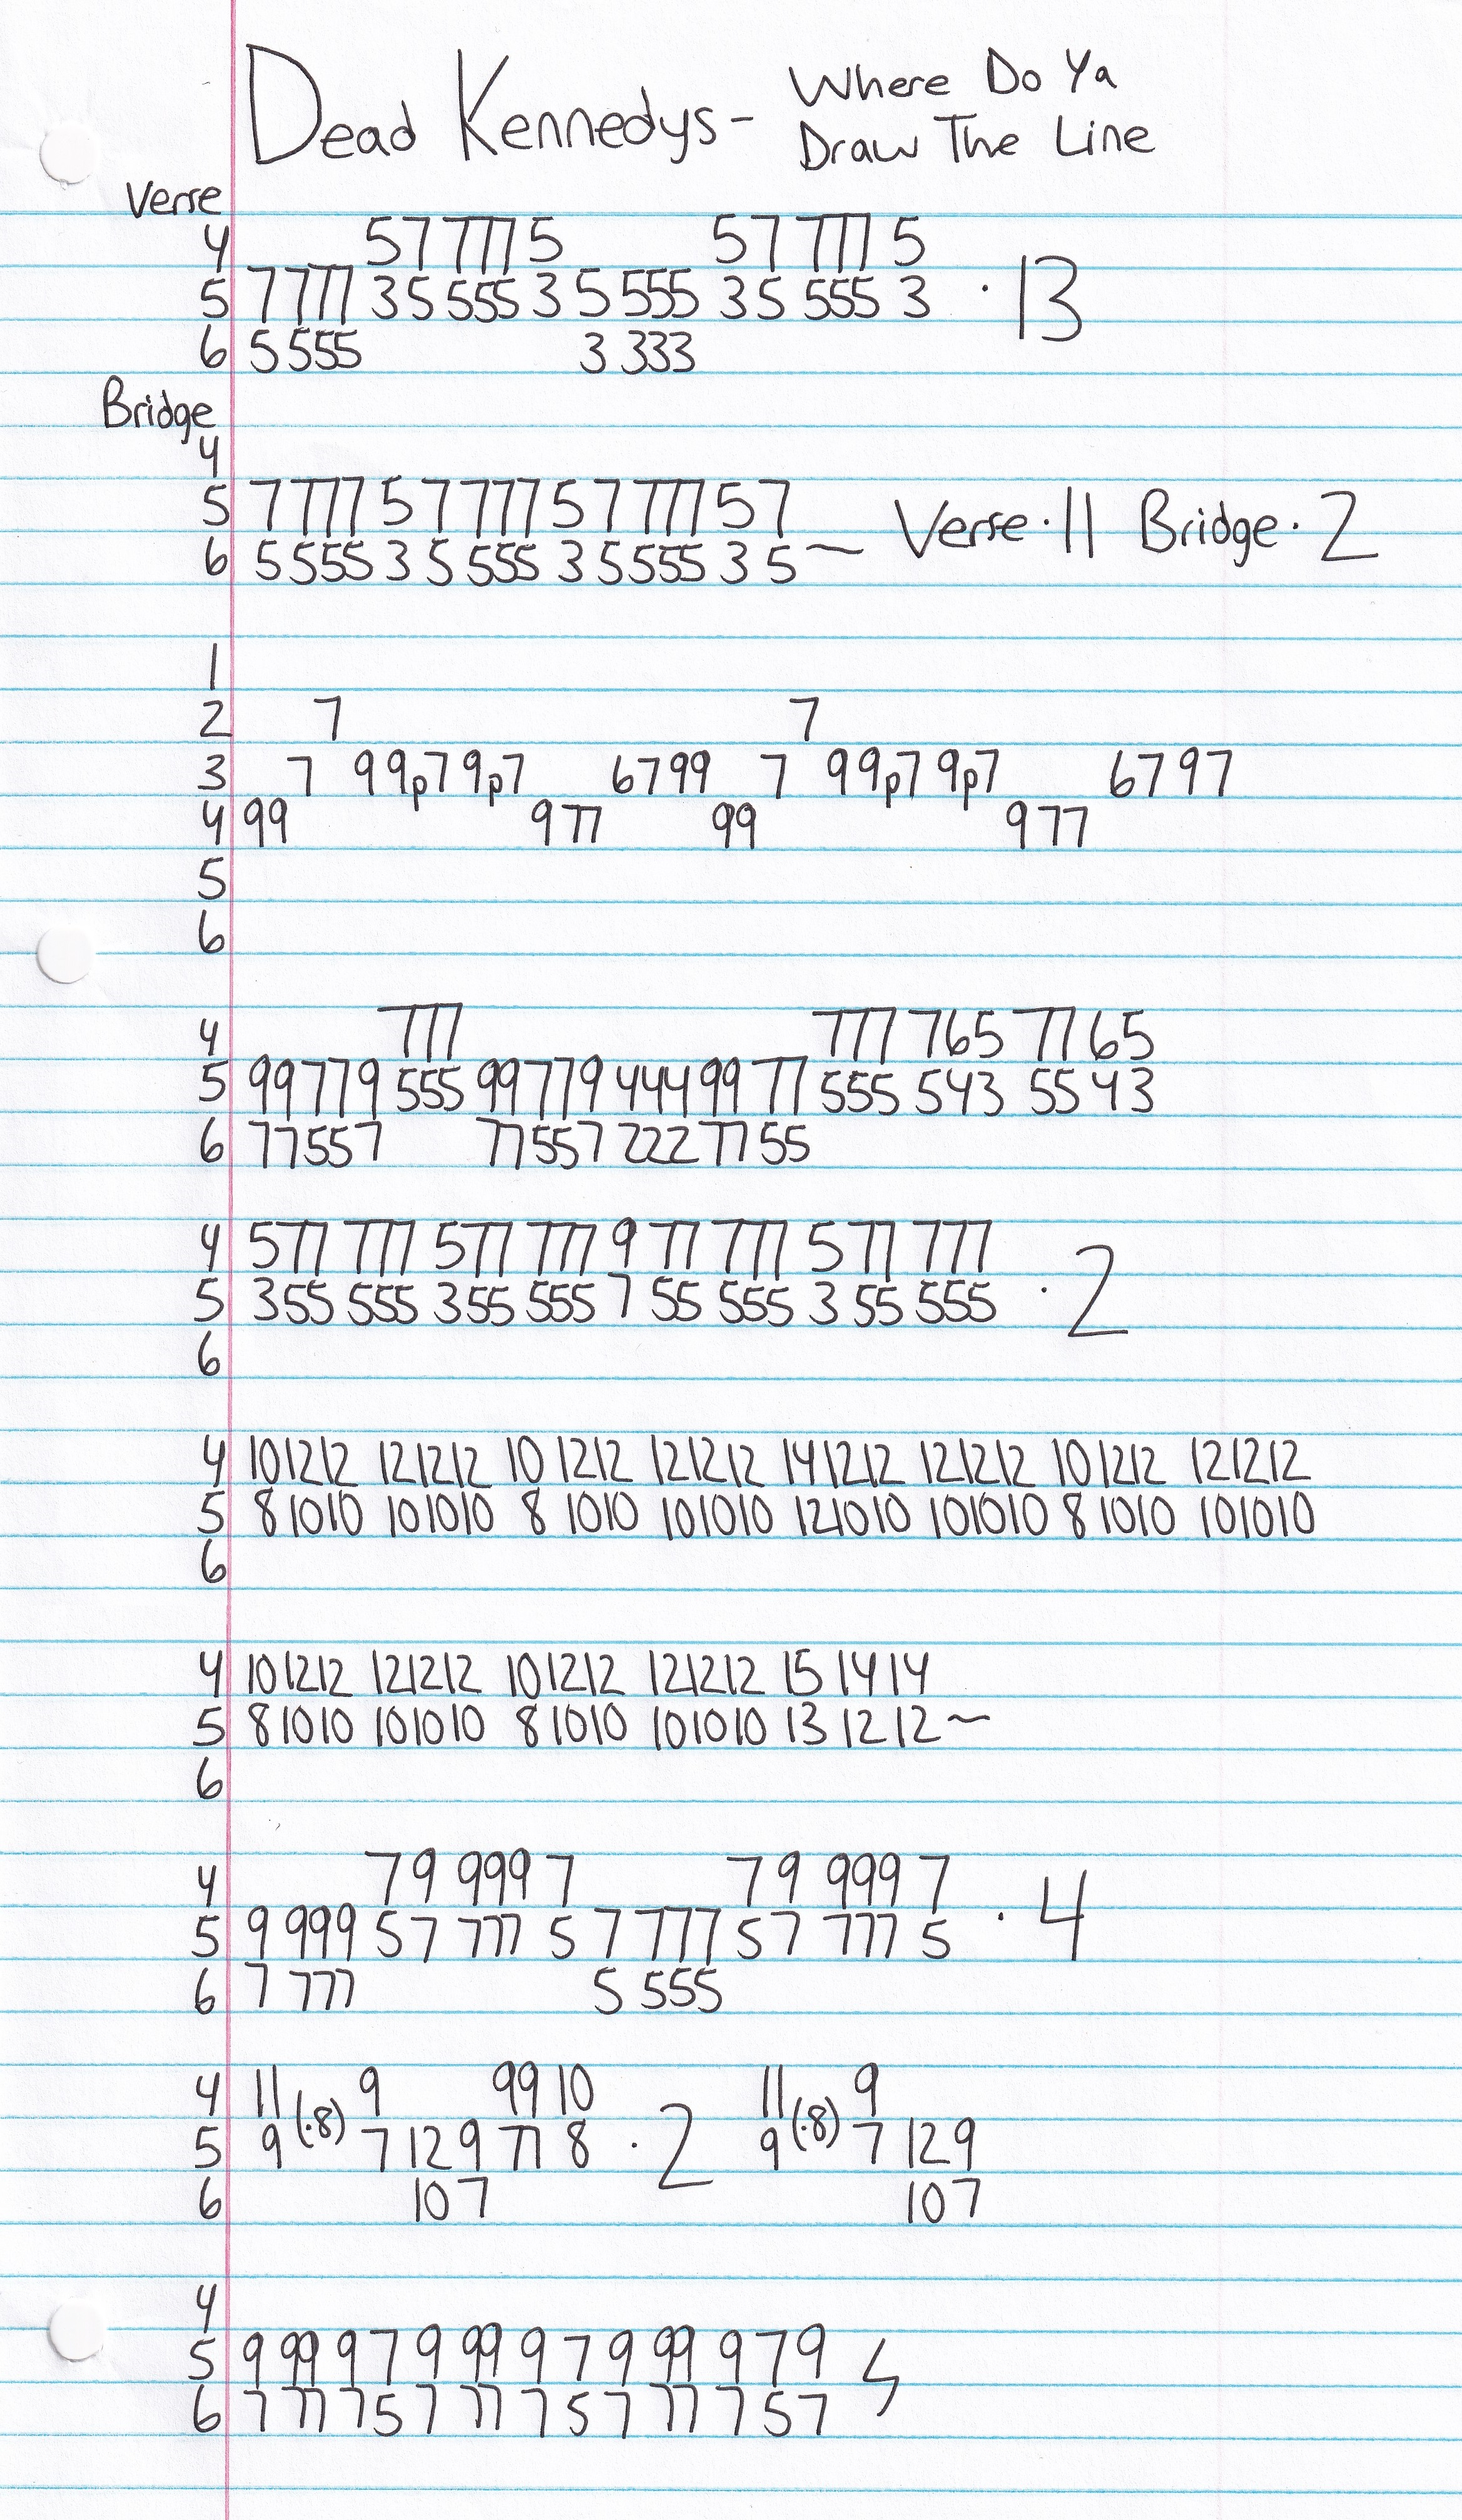 Dead Kennedys- Where Do Ya
Draw The Line
Verse
4 57 777 5 57 777 5
5 7 777 3 5 555 3 5 555 3 5 555 3 · 13
6 5 555 3 333
Bridge
4
5 7 777 5 7 777 5 7 777 5 7
6 5 555 3 5 555 3 5 555 3 5~ Verse·11 Bridge·2
1
2 7 7
3 7 99p79p7 6799 7 99p79p7 6797
4 99 977 99 977
5
6
4 777 777 765 77 65
5 99779 555 99779 444 99 77 555 543 55 43
6 77557 77557 222 77 55
4 577 777 577 777 9 77 777 5 77 777
5 355 555 355 555 7 55 555 3 55 555 · 2
6
4 101212 121212 10 1212 121212 141212 121212 101212 121212
5 8 1010 101010 8 1010 101010 121010 101010 8 1010 101010
6
4 101212 121212 101212 121212 15 1414
5 8 1010 101010 8 1010 101010 13 1212~
6
4 79 999 7 79 999 7
5 9 999 57 777 5 7 777 57 777 5 · 4
6 7 777 5 555
4 11 9 99 10 11 9
5 9 (·8) 7 12 9 77 8 · 2 9 (·8) 7 12 9
6 10 7 10 7
4
5 9 99 9 7 9 99 9 7 9 99 9 7 9
6 7 77 7 5 7 77 7 5 7 77 7 5 7